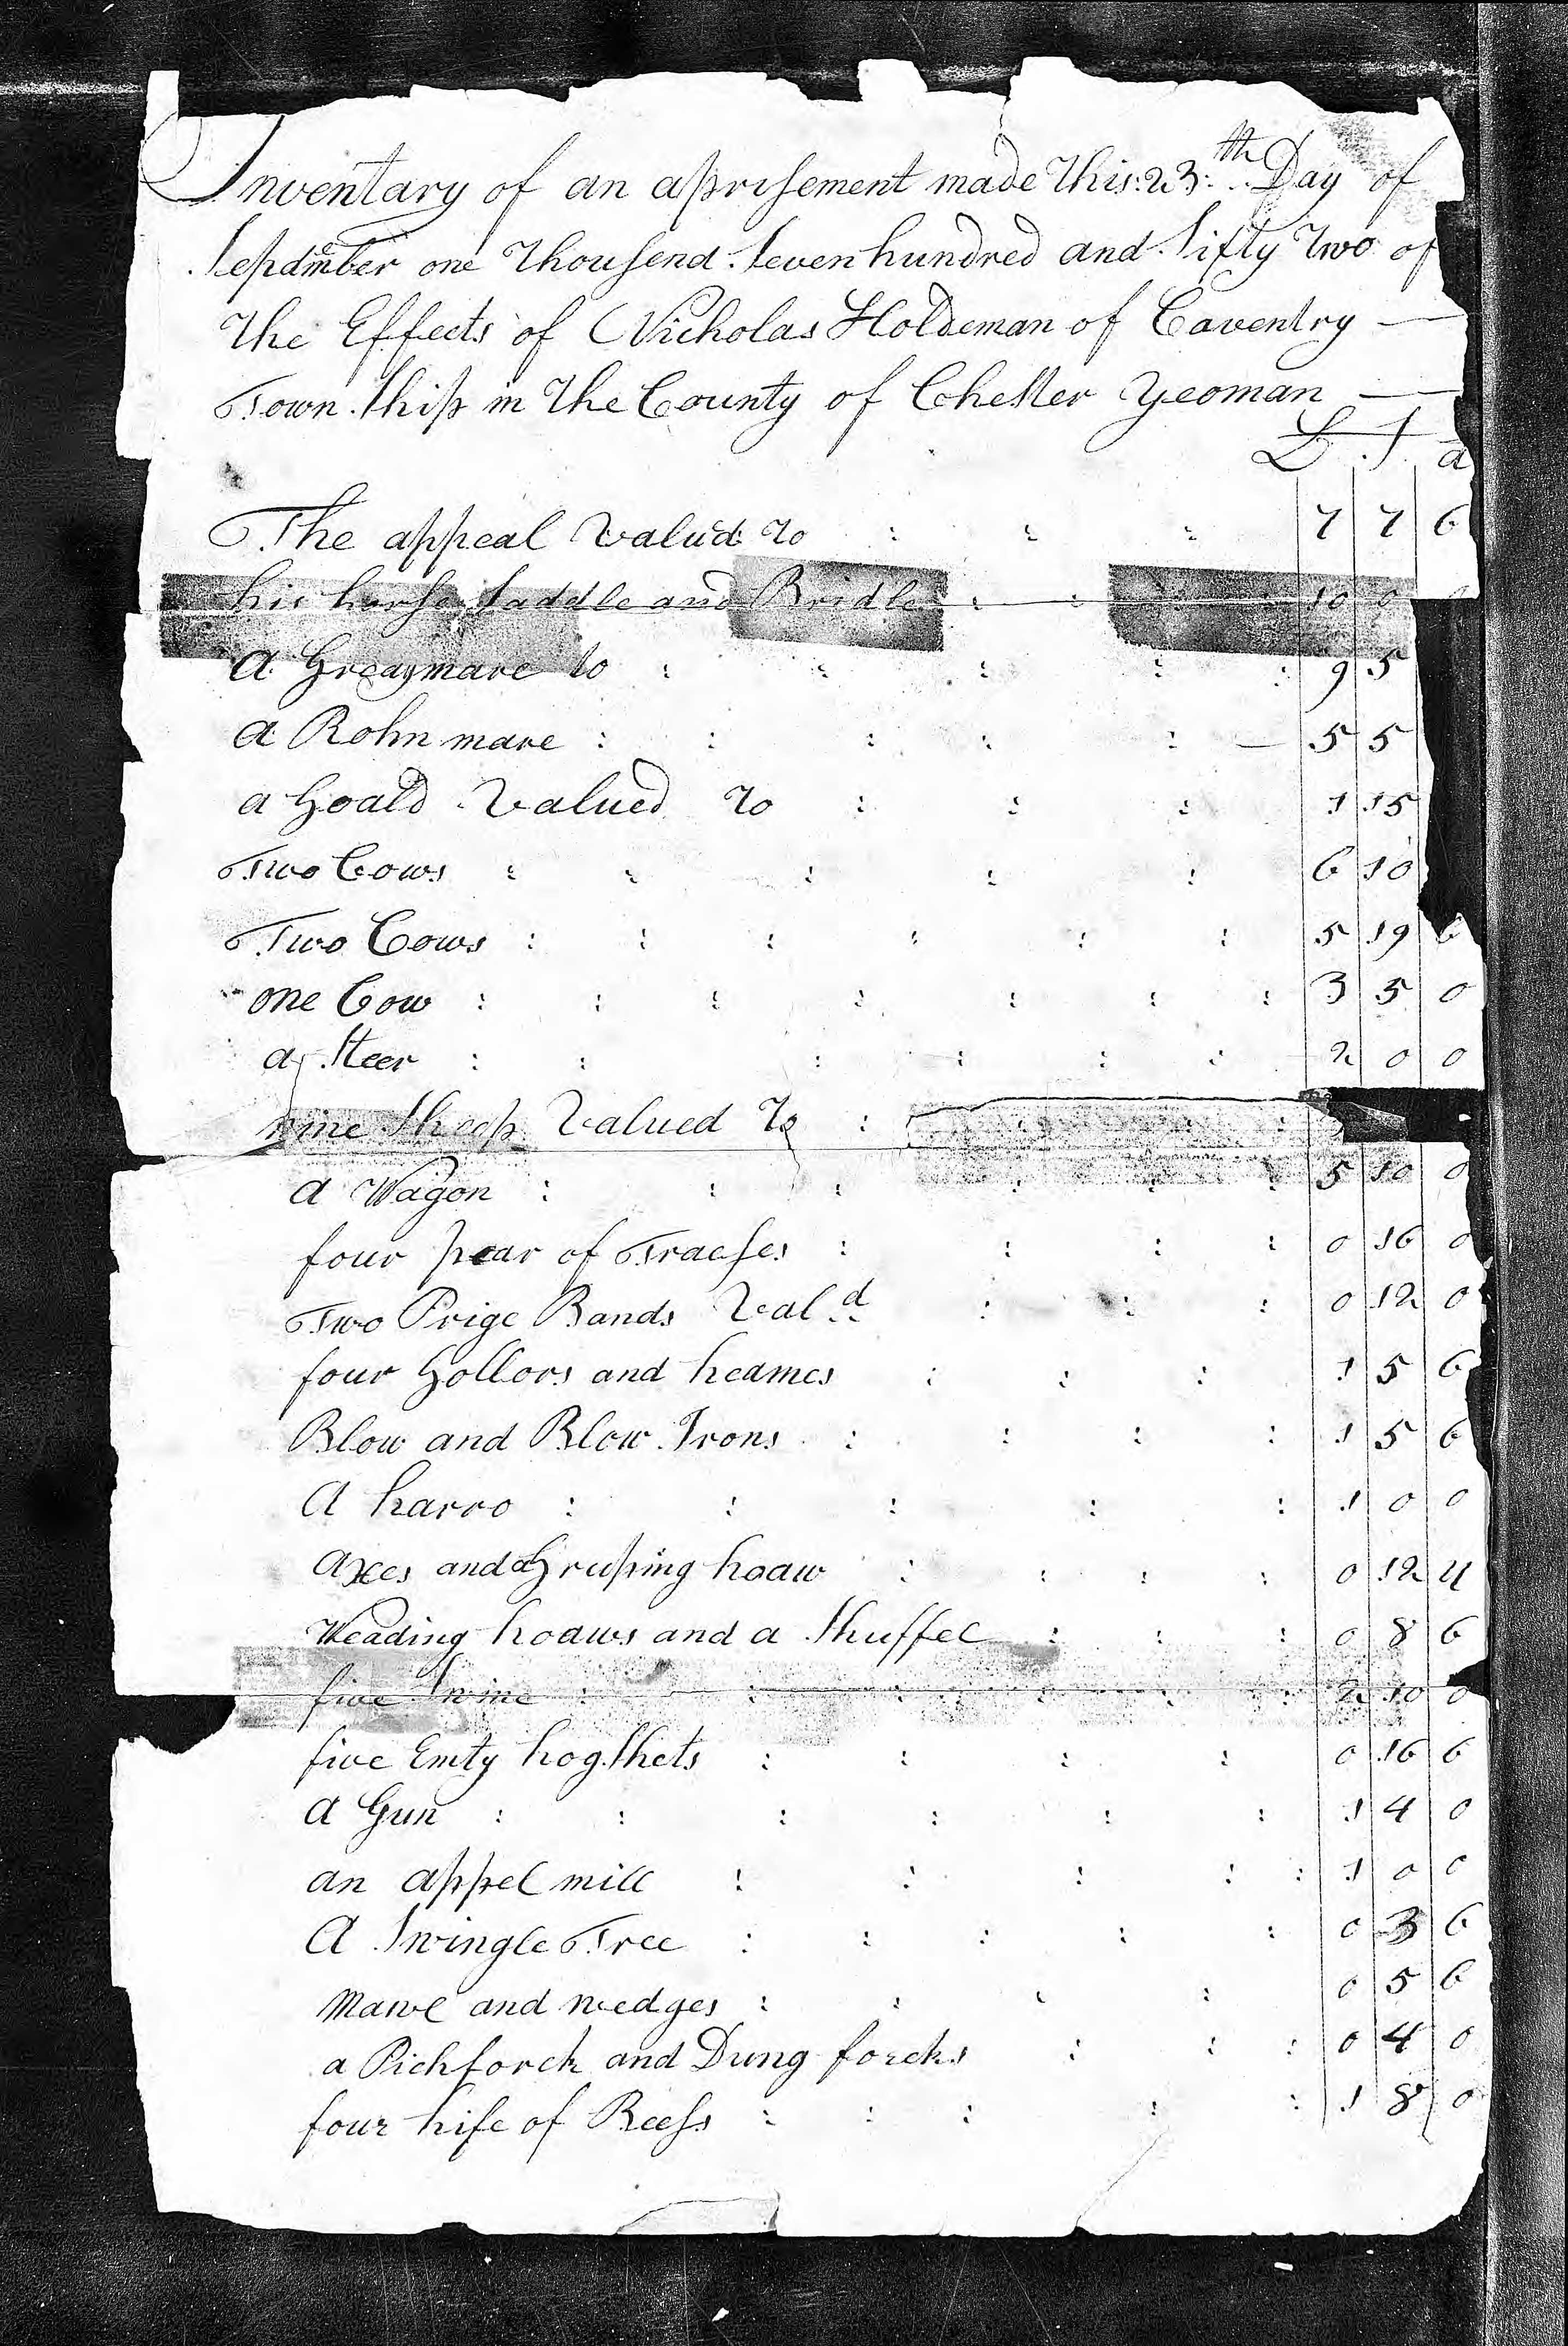 Inventary of an aprisement made This 23th Day of
Sepdmber one Thousend Seven hundred and fifty Two of
The Effects of Nicholas Holdeman of Caventry —
Town Ship in The County of Chester Yeoman —
£ S d
The appeal Valud To : : : 7 7 6
his horse Saddle and Bridle : : 10 0 0
A Greaymare to : : : : : 9 5
A Rohn mare : : : : : — 5 5
a Goald Valued To : : : 1 15
Two Cows : : : : : 6 10
Two Cows : : : : : : 5 19 6
one Cow : : : : : : : 3 5 0
a Steer : : : : : : 2 0 0
nine Sheep Valued To :
a Wagon : : : : : : 5 10 0
four pear of Traeses : : : : 0 16 0
Two Prige Bands Vald : : : 0 12 0
four Gollors and heames : : : 1 5 6
Blow and Blow Irons : : : : 1 5 6
A harro : : : : : 1 0 0
Axes and a Gruping hoaw : : : : 0 12 4
Weading hoaws and a Shuffel : : : 0 8 6
five Swine : : : : : : 2 10 0
five Emty hogShets : : : : 0 16 6
A Gun : : : : : : 1 4 0
an appel mill : : : : : 1 0 0
A Swingle Tree : : : : : 0 3 6
Mawl and wedges : : : : 0 5 6
a Pichforck and Dung forcks : : : 0 4 0
four hife of Beess : : : : : 1 8 0